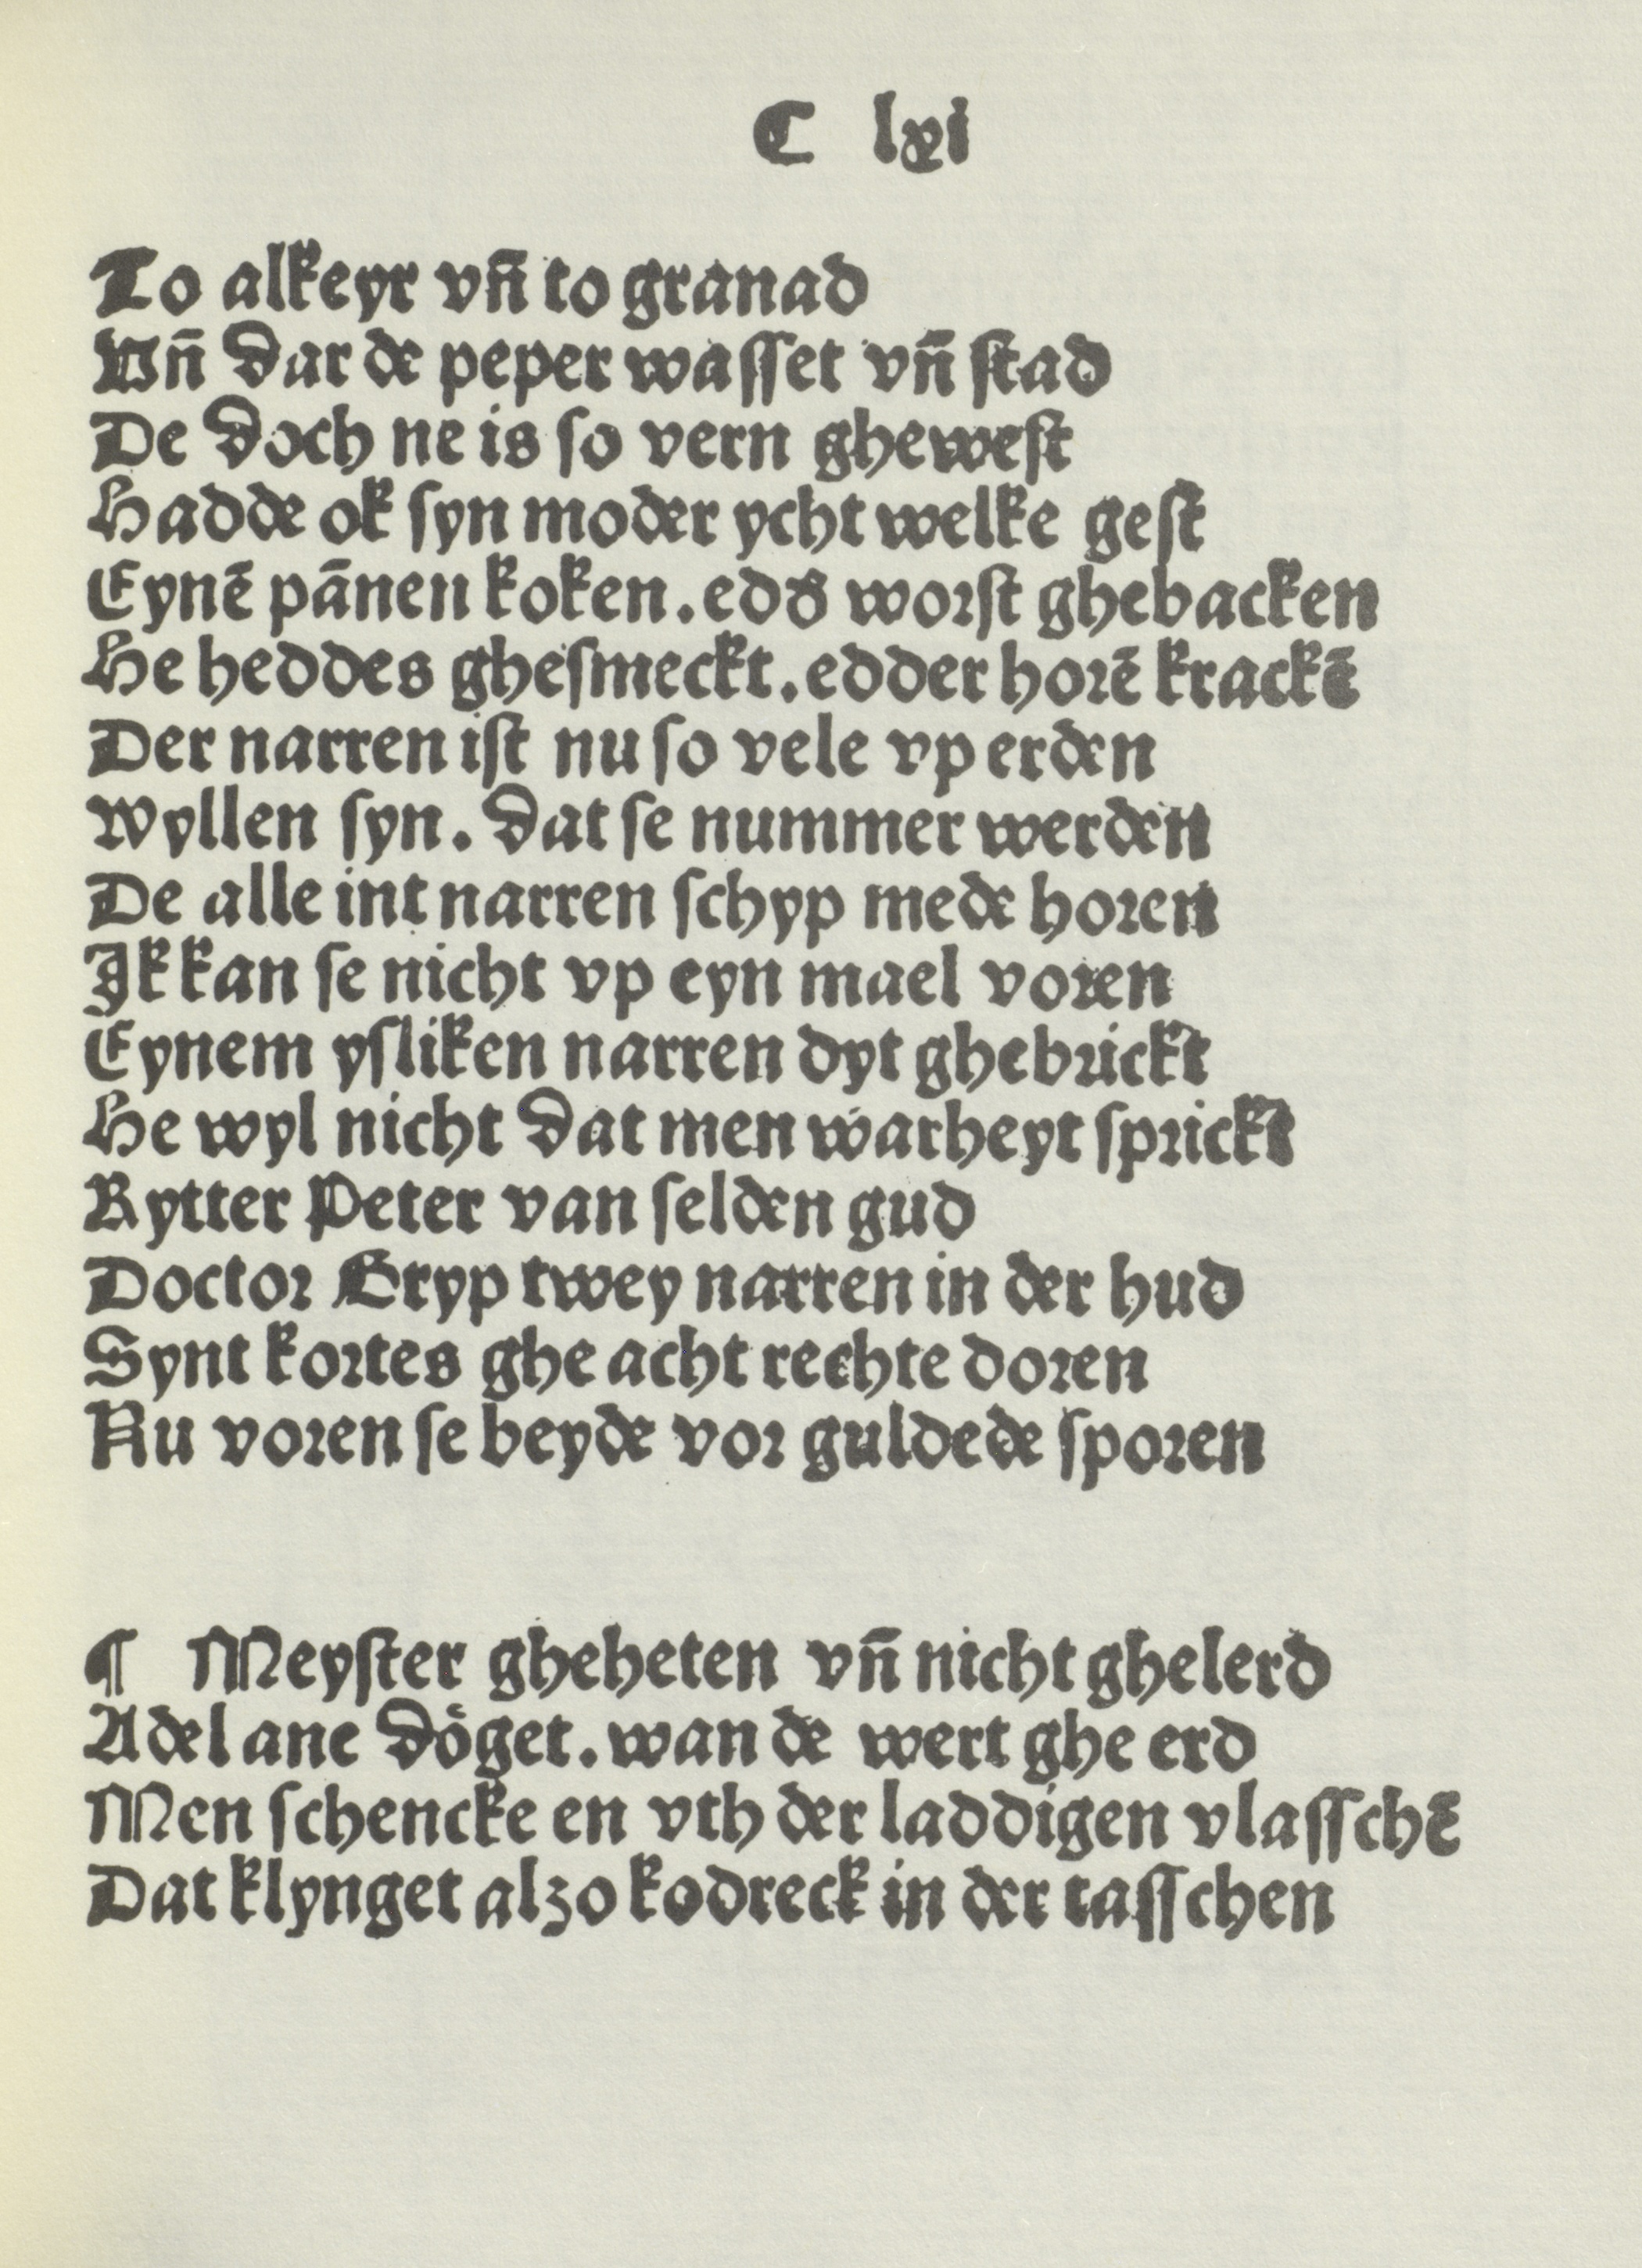 C lxi
To alkeyr vn̄ to granad
Vn̄ dar de peper waſſet vn̄ ſtad
De doch ne is ſo vern gheweſt
Hadde ok ſyn moder ycht welke geſt
Eynē pānen koken. edď worſt ghebacken
He heddes gheſmeckt. edder horē krackē
Der narren iſt nu ſo vele vp erden
Wyllen ſyn. dat ſe nummer werden
De alle int narren ſchyp mede horen
Ik kan ſe nicht vp eyn mael voren
Eynem yſliken narren dyt ghebrickt
He wyl nicht dat men warheyt ſprickt
Rytter Peter van ſelden gud
Doctor Gryp twey narren in der hud
Synt kortes ghe acht rechte doren
Nu voren ſe beyde vor guldede ſporen
¶ Meyſter gheheten vn̄ nicht ghelerd
Adel ane doͤget. wan de wert ghe erd
Men ſchencke en vth der laddigen vlaſſchē
Dat klynget alzo kodreck in der taſſchen